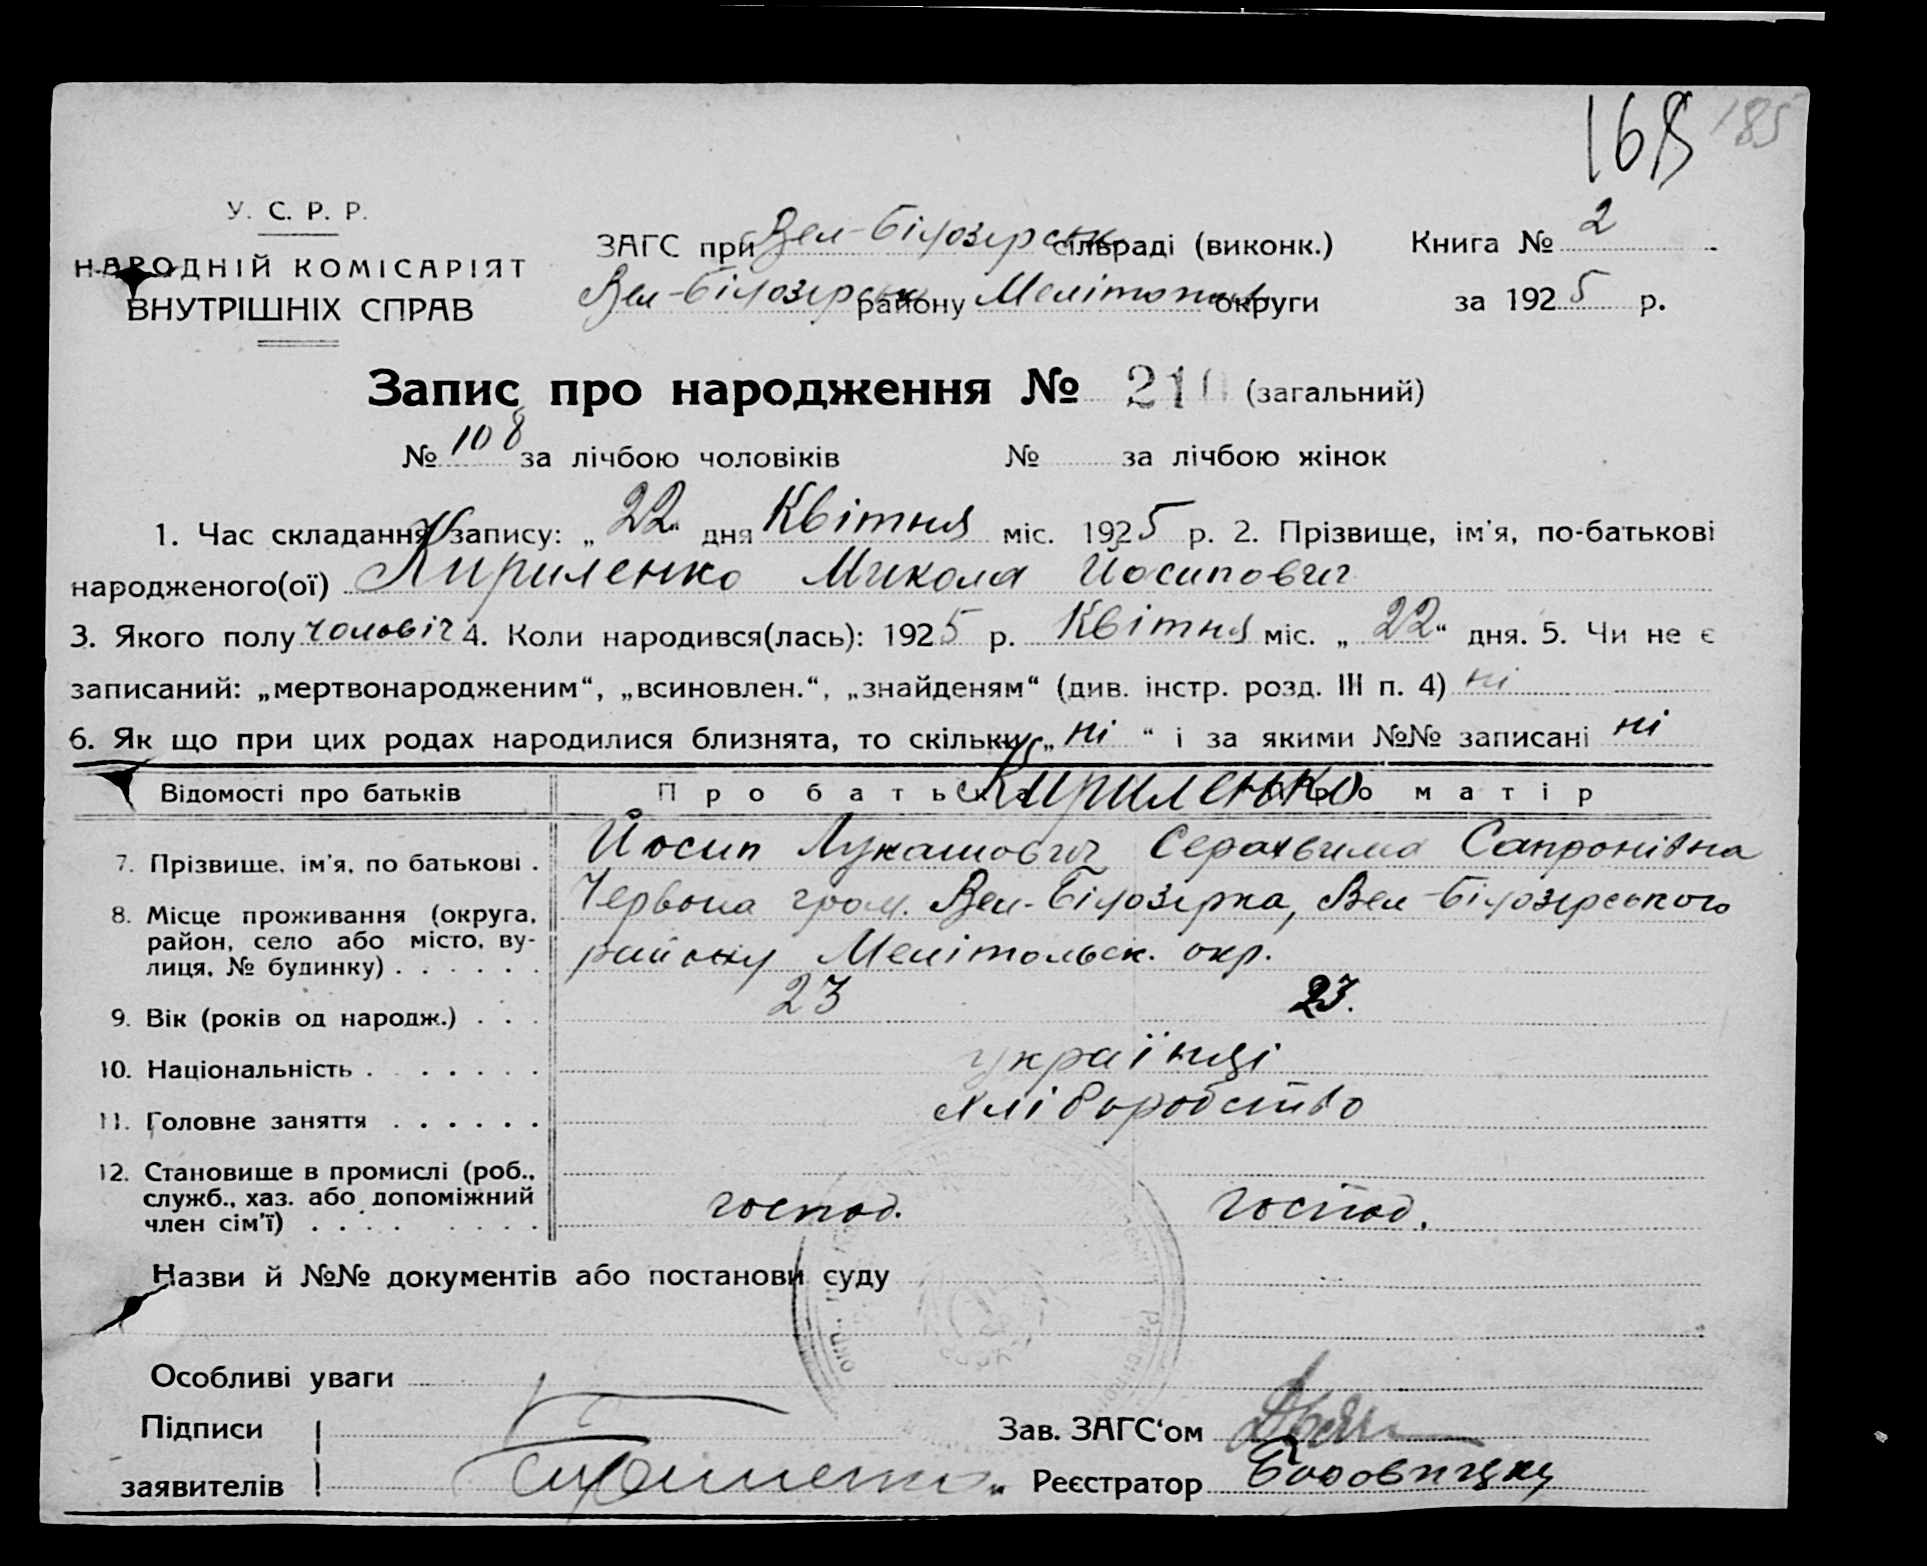 165 185
У. С. Р. Р.
НАРОДНІЙ КОМІСАРІЯТ
ВНУТРІШНІХ СПРАВ
ЗАГС при Вел-Білозерськ сільраді (виконк.) Книга № 2
Вел-Білозерськ району Мелітопол округи за 1925 р.
Запис про народження № 210 (загальний)
№ 108 за лічбою чоловіків № за лічбою жінок
1. Час складання запису: „22“ дня Квітня міс. 1925 р. 2. Прізвище, ім'я, по-батькові
народженого(ої) Кириленко Микола Йосипович
3. Якого полу чоловіч 4. Коли народився(лась): 1925 р. Квітня міс. „22“ дня. 5. Чи не є
записаний: „мертвонародженим“, „всиновлен.“, „знайденям“ (див. інстр. розд. III п. 4) ні
6. Як що при цих родах народилися близнята, то скільки „ні“ і за якими №№ записані ні
Відомості про батьків Про батька Про матір
Кириленько
7. Прізвище, ім'я, по батькові . Йосип Лукашович Серахвима Сапронівна
8. Місце проживання (округа, район, село або місто, вулиця, № будинку) . . . . . . Червона гром. Вел-Білозерка, Вел-Білозерського
району Мелітольск. окр.
9. Вік (років од народж.) . . . 23 23.
10. Національність . . . . . . українці
11. Головне заняття . . . . . . хліборобство
12. Становище в промислі (роб.,
служб., хаз. або допоміжний
член сім'ї) . . . . . . . . господ. господ.
Назви й №№ документів або постанови суду
Особливі уваги
Підписи
заявителів
Зав. ЗАГС'ом
Реєстратор